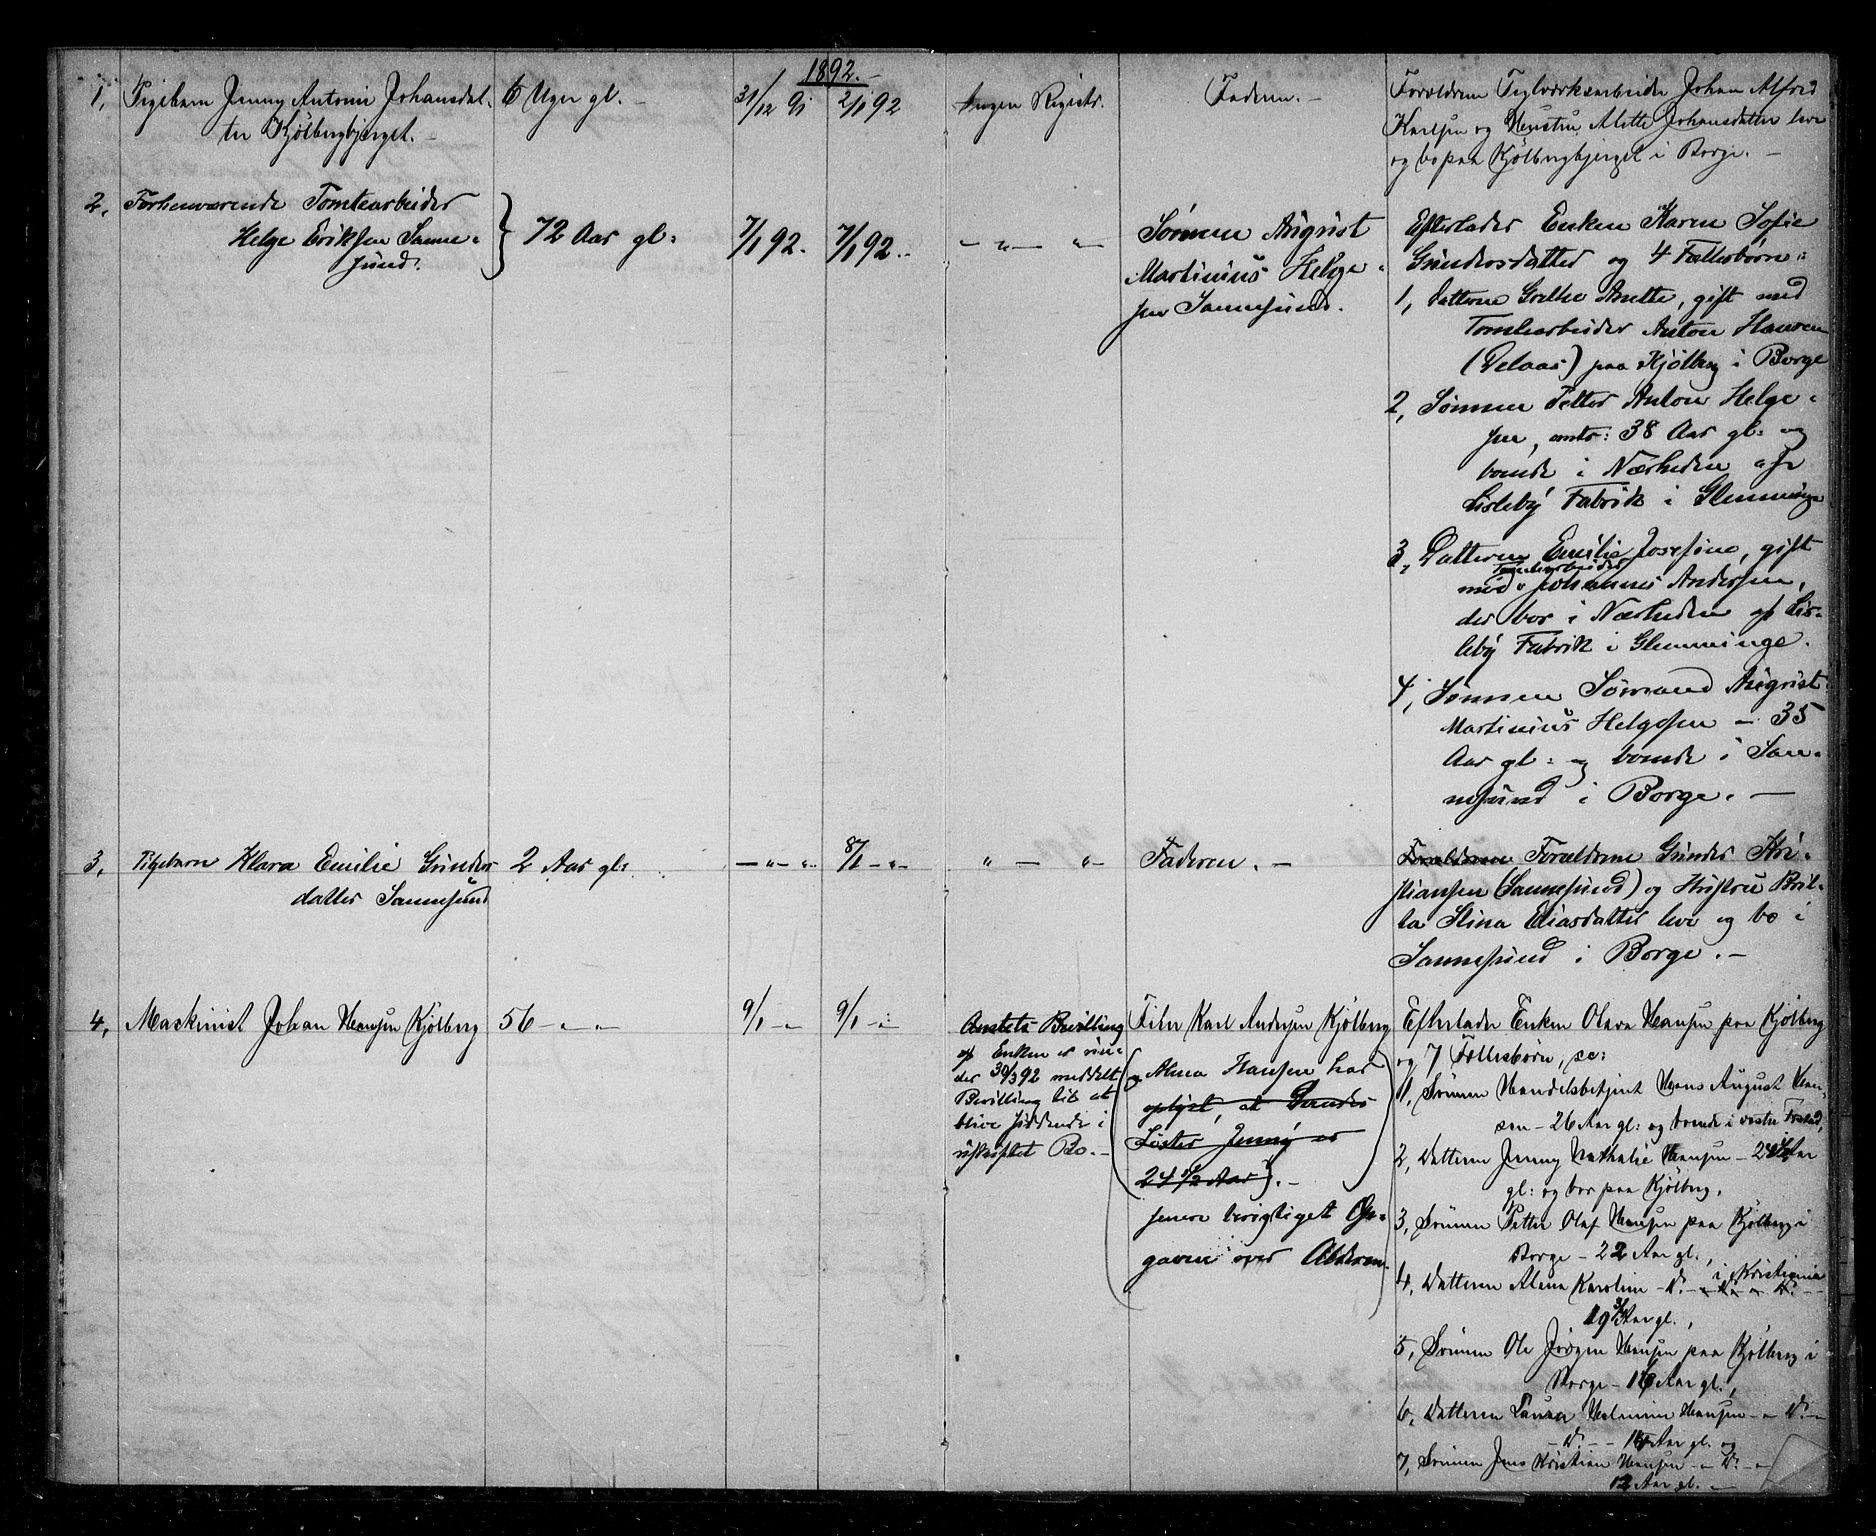 1892.
1, Pigebarn Jenny Antonie Johansdat-
ter Kjølbergbjerget.
6 Uger gl. -
31/12 91
2/1 92
Ingen Registr.
Faderen. -
Forældrene Teglværksarbeider Johan Alfred
Karlsen og Hustru Alette Johansdatter leve
og bo paa Kjølbergbjerget i Borge. -
2, Forhenværende Tomtearbeider
Helge Eriksen Sanne-
sund.
72 Aar gl:
7/1 92.
7/1 92.
- " - " -
Sønnen August
Martinius Helge-
sen Sannesund.
Efterlader Enken Karen Sofie
Gundersdatter og 4 Fællesbørn:
1, Datteren Grethe Anette, gift med
Tomtearbeider Anton Hansen
(Delaas) paa Kjølberg i Borge
2, Sønnen Petter Anton Helge-
sen, omtr: 38 Aar gl: og
boende i Nærheden af
Lisleby Fabrik i Glemminge
3, Datteren Emilie Josefine, gift
Tomtearbeider
med Johannes Andersen,
der bor i Nærheden af Lis-
leby Fabrik i Glemminge.
4, Sønnen August
Martinius Helgesen - 35
Aar gl: og boende i San-
nesund i Borge. -
3, Pigebarn Klara Emilie Gunder
datter Sannesund
2 Aar gl:
- " - "
8/1 - " -
" - " -
Faderen. -
Forældrene Forældrene Gunder Kri-
stiansen (Sannesund) og Hustru Brit-
ta Stina Eliasdatter leve og bo i
Sannesund i Borge. -
4, Maskinist Johan Hansen Kjølberg
56 - " - "
9/1 - "
9/1 - "
Amtets Bevilling
Enken er un-
der 30/3 92 meddelt
Bevilling til at
blive siddende i
uskiftet Bo. -
Filer Karl Andersen Kjølberg
(og Alma Hansen har
oplyst, at
Søster Jenny er
24 1/2 Aar). -
senere berigtiget Op-
gaven over Alderen.
Efterlader Enken Olava Hansen paa Kjølberg
og 7 Fællesbørn, sc:
1, Sønnen Handelsbetjent Hans August Han-
sen - 26 Aar gl: og boende i vestre Forstad,
2, Datteren Jenny Nathalie Hansen - 24 1/2 Aar
gl: og bor paa Kjølberg,
3, Sønnen Petter Olaf Hansen paa Kjølberg i
Borge - 22 Aar gl.,
i Kristiania
4, Datteren Alma Karoline - Do. - " - " - Do. -
19 3/4 Aar gl.,
5, Sønnen Ole Jørgen Hansen paa Kjølberg i
Borge - 16 Aar gl.,
6, Datteren Laura Hansen - " - Do. - "
- Do. - - 14 Aar gl. og
7, Sønnen Jens Kristian Hansen - " - Do. - "
12 Aar gl. -